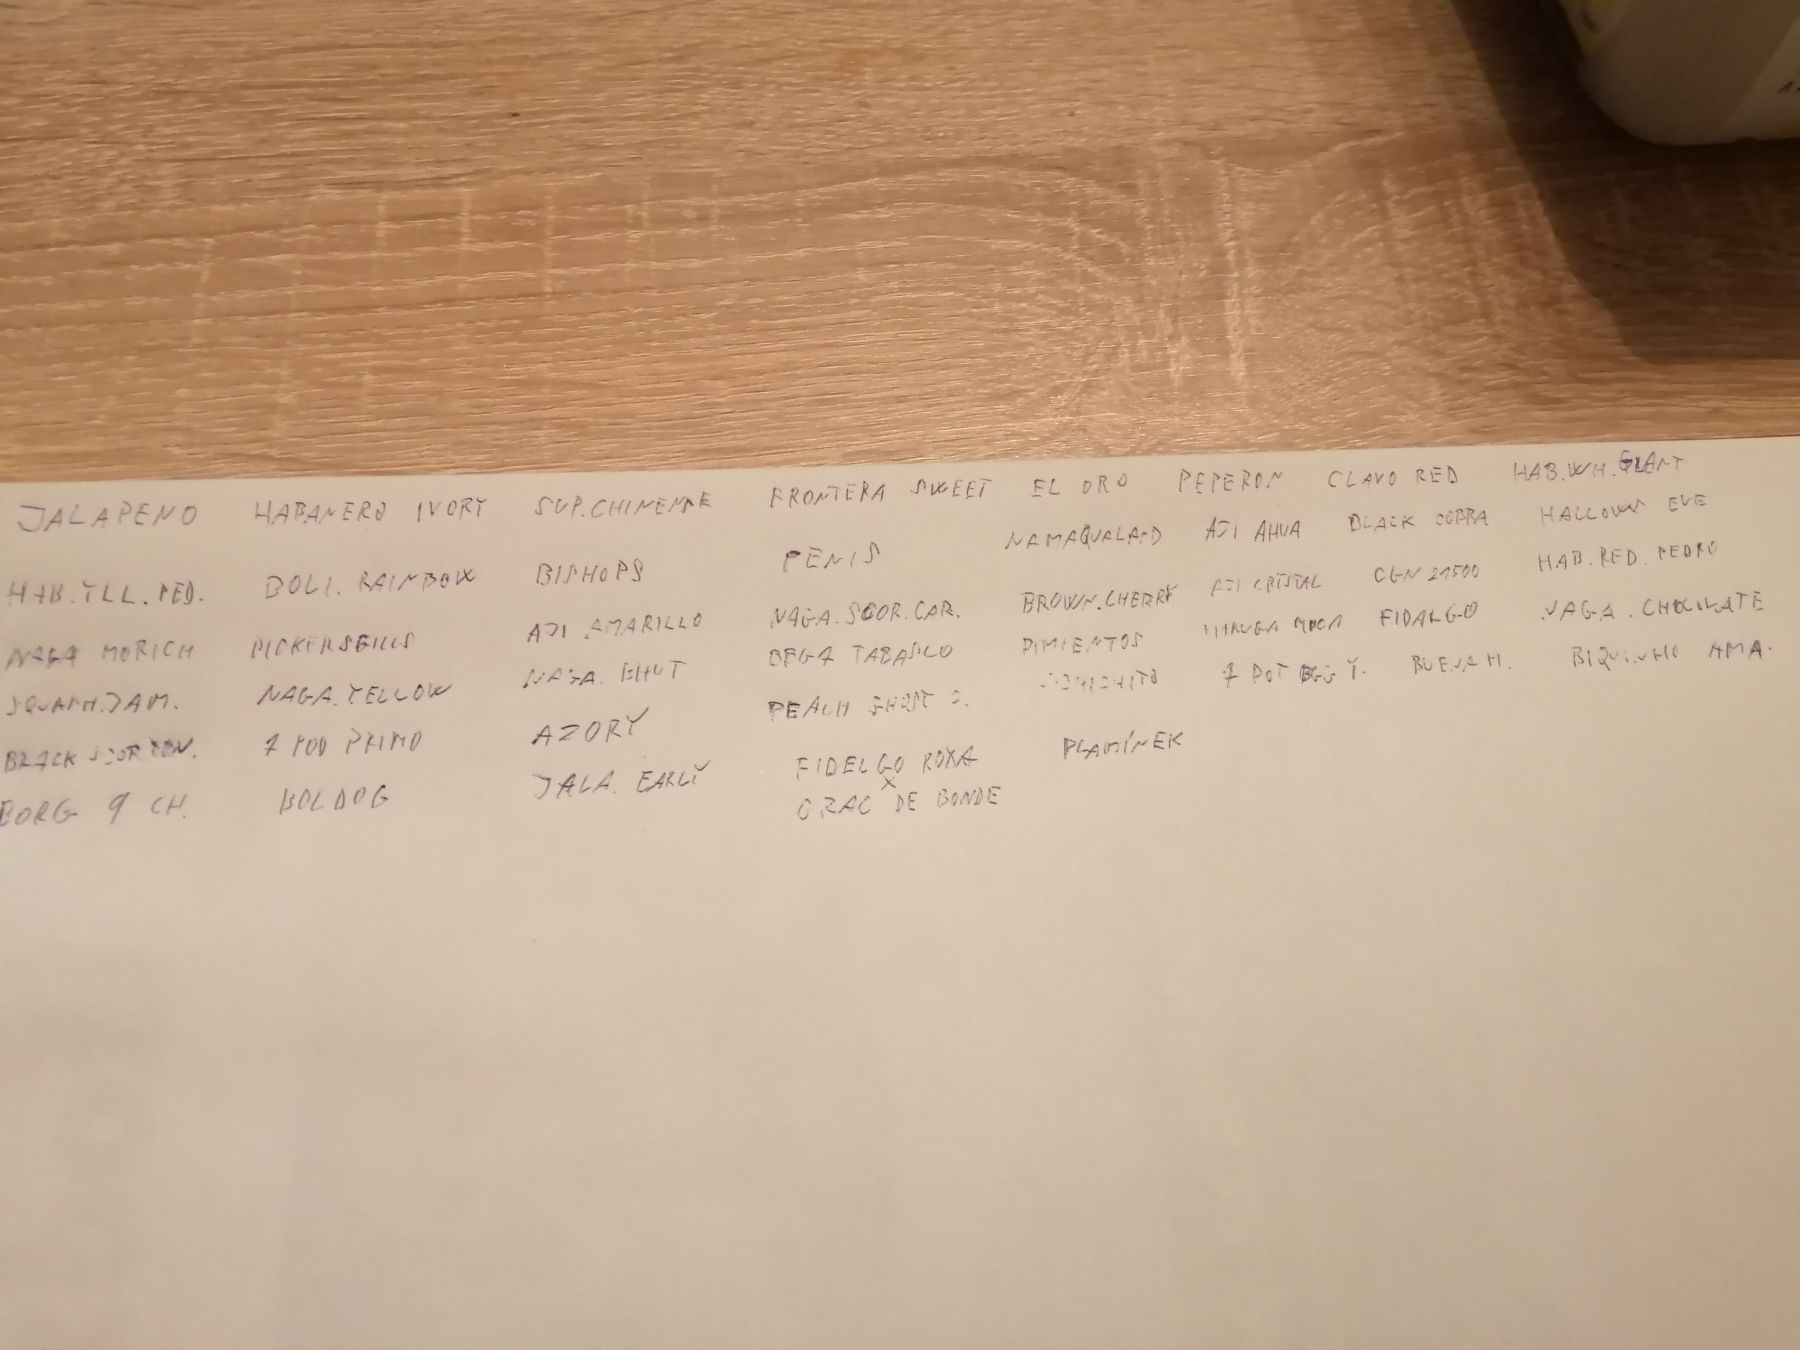 JALAPENO HABANERO IVORY SUP.CHINENSE FRONTERA SWEET EL ORO PEPERON CLAVO RED HAB.WH.GIANT
HAB.YLL.PED. BOLI.RAINBOW BISHOPS PENIS NAMAQUALAND AJI AHUA BLACK COBRA HALLOWS EVE
NAGA MORICH PICKERSGILLS AJI AMARILLO NAGA.SCOR.CAR. BROWN.CHERRY AJI CRISTAL CGN 21500 HAB.RED.PEDRO
SQUASH.JAM. NAGA.YELLOW NAGA.BHUT BEGA TABASCO PIMIENTOS FIDALGO NAGA.CHOCOLATE
BLACK 7 POD PRIMO AZORY PEACH GHOST 7 POT Y. BUENA M. BIQUINHO AMA.
BORG 9 CH. BOLDOG JALA.EARLY FIDELGO ROXA PLAMÍNEK
X
DE BONDE